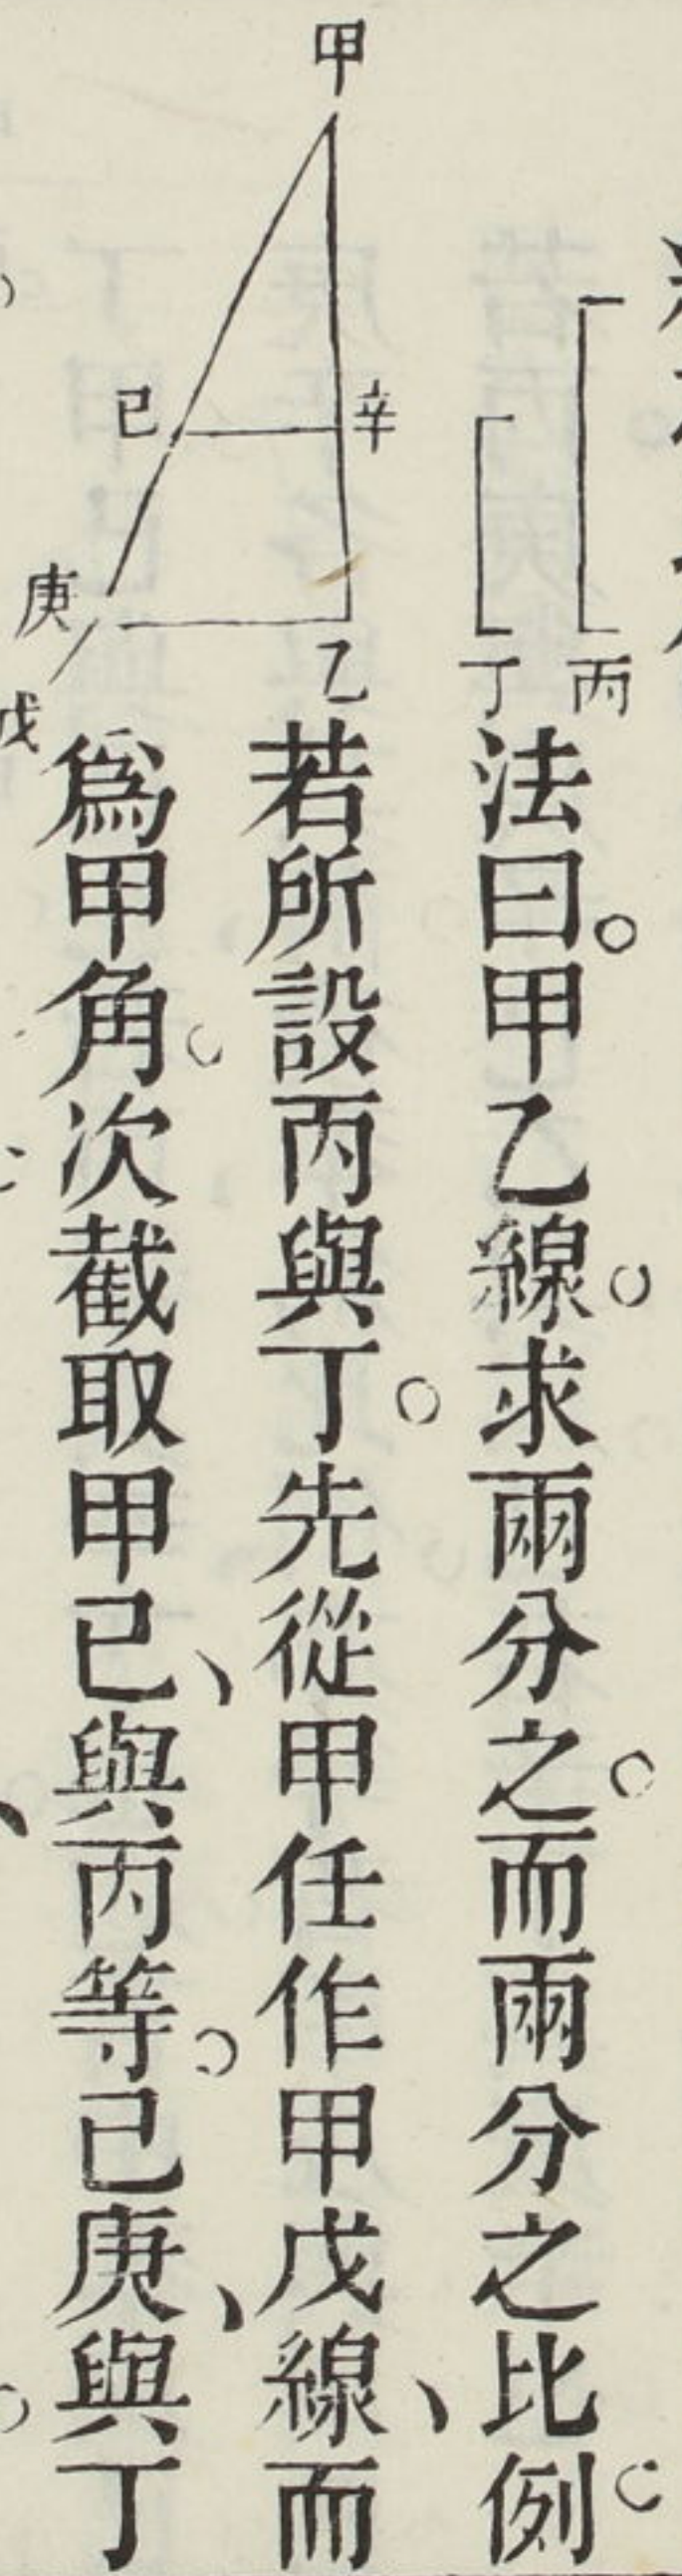 甲
己
辛
庚
乙
戊
丁
丙
法曰。甲乙線。求兩分之。而兩分之比例。
若所設丙與丁。先從甲任作甲戊線、而
爲甲角。次截取甲己、與丙等。己庚、與丁